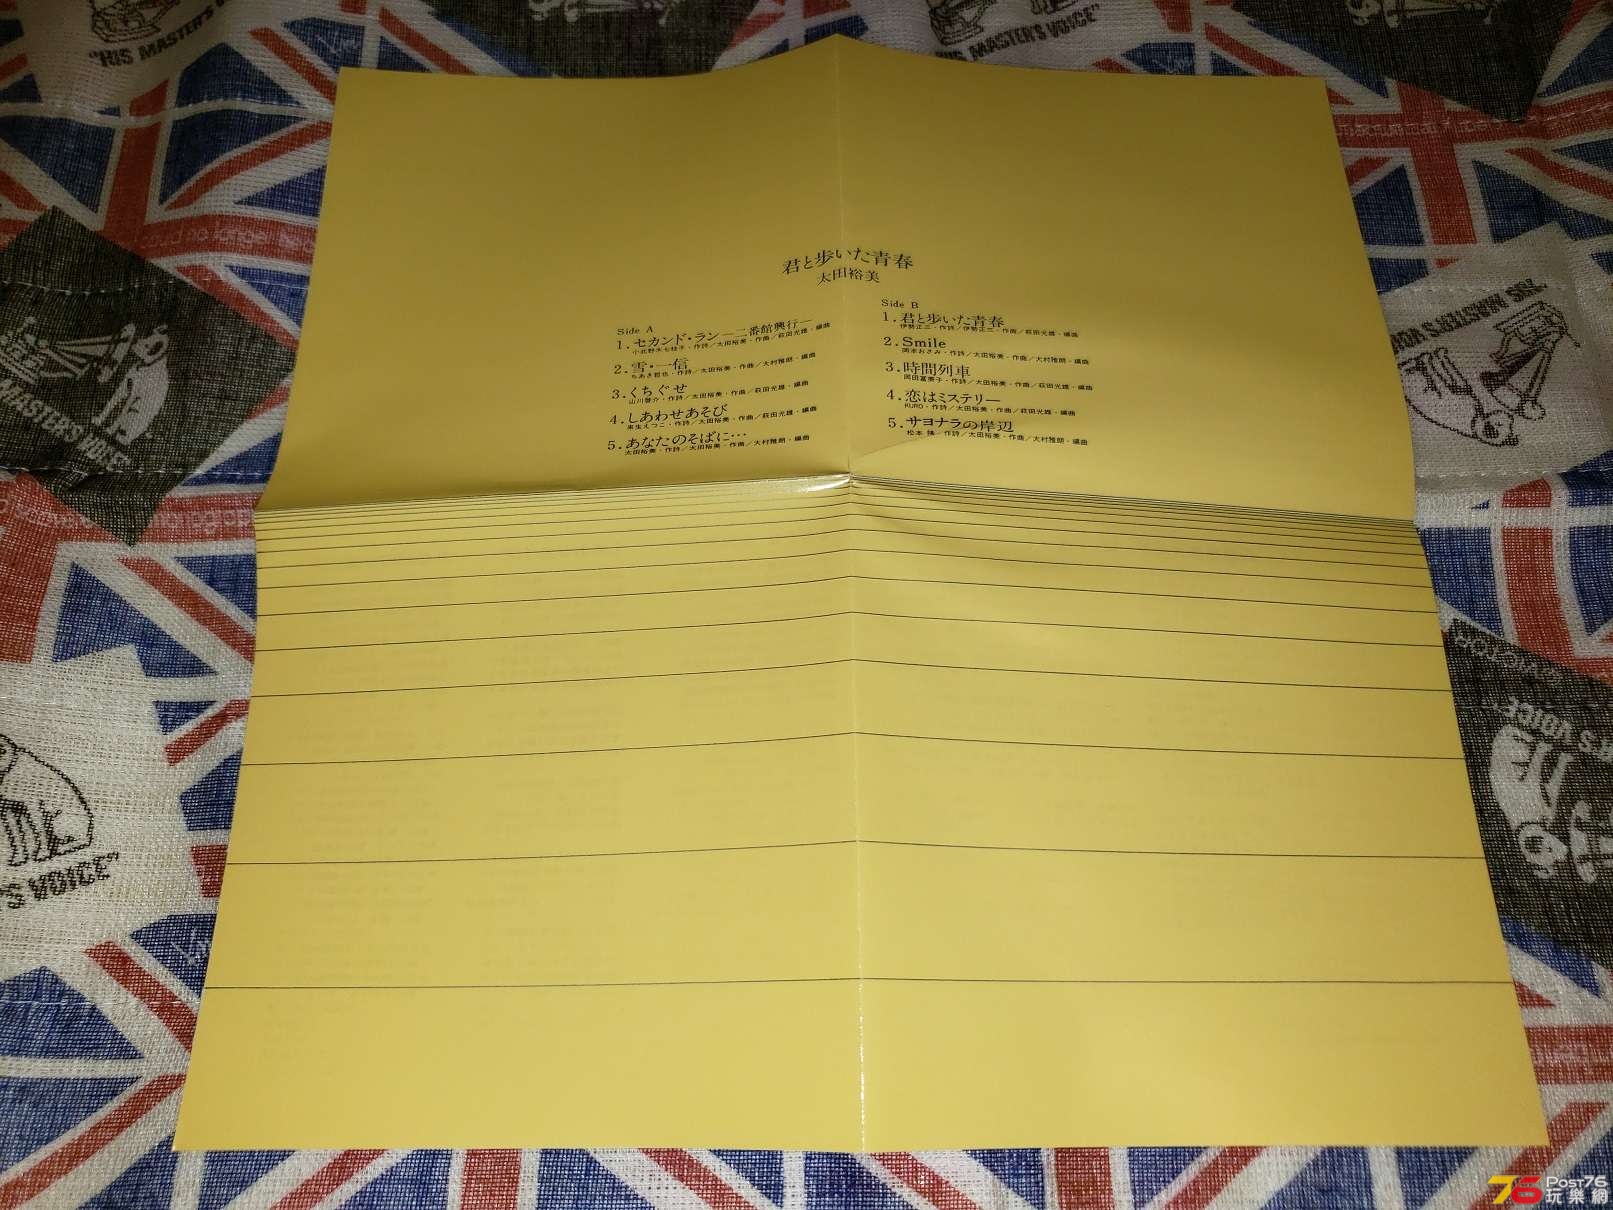 "HIS MASTER'S VOICE"
HIS MASTER'S VOICE"
君と歩いた青春
太田裕美
Side A
1.セカンド・ラン―二番館興行―
2.雪・一信
ちあき哲也・作詩/太田裕美・作曲/大村雅朗・編曲
3.くちぐせ
山川啓介・作詩/太田裕美・作曲/萩田光雄・編曲
4.しあわせあそび
来生えつこ・作詩/太田裕美・作曲/萩田光雄・編曲
5.あなたのそばに…
太田裕美・作詩/太田裕美・作曲/大村雅朗・編曲
Side B
1.君と歩いた青春
伊勢正三・作詩/伊勢正三・作曲/萩田光雄・編曲
2.Smile
岡本おさみ・作詩/太田裕美・作曲/大村雅朗・編曲
3.時間列車
岡田冨美子・作詩/太田裕美・作曲/萩田光雄・編曲
4.恋はミステリー
KURO・作詩/太田裕美・作曲/萩田光雄・編曲
5.サヨナラの岸辺
松本 隆・作詩/太田裕美・作曲/大村雅朗・編曲
MASTER'S VOICE
'S VOICE"
76 Post76
玩樂網